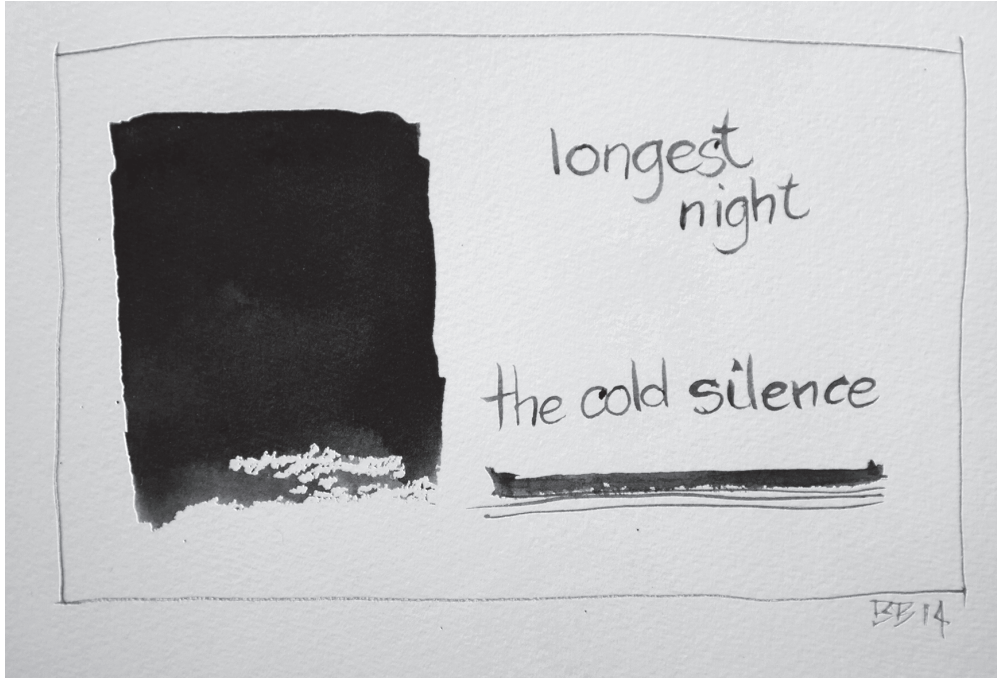 longest
night
the cold silence
BB 14